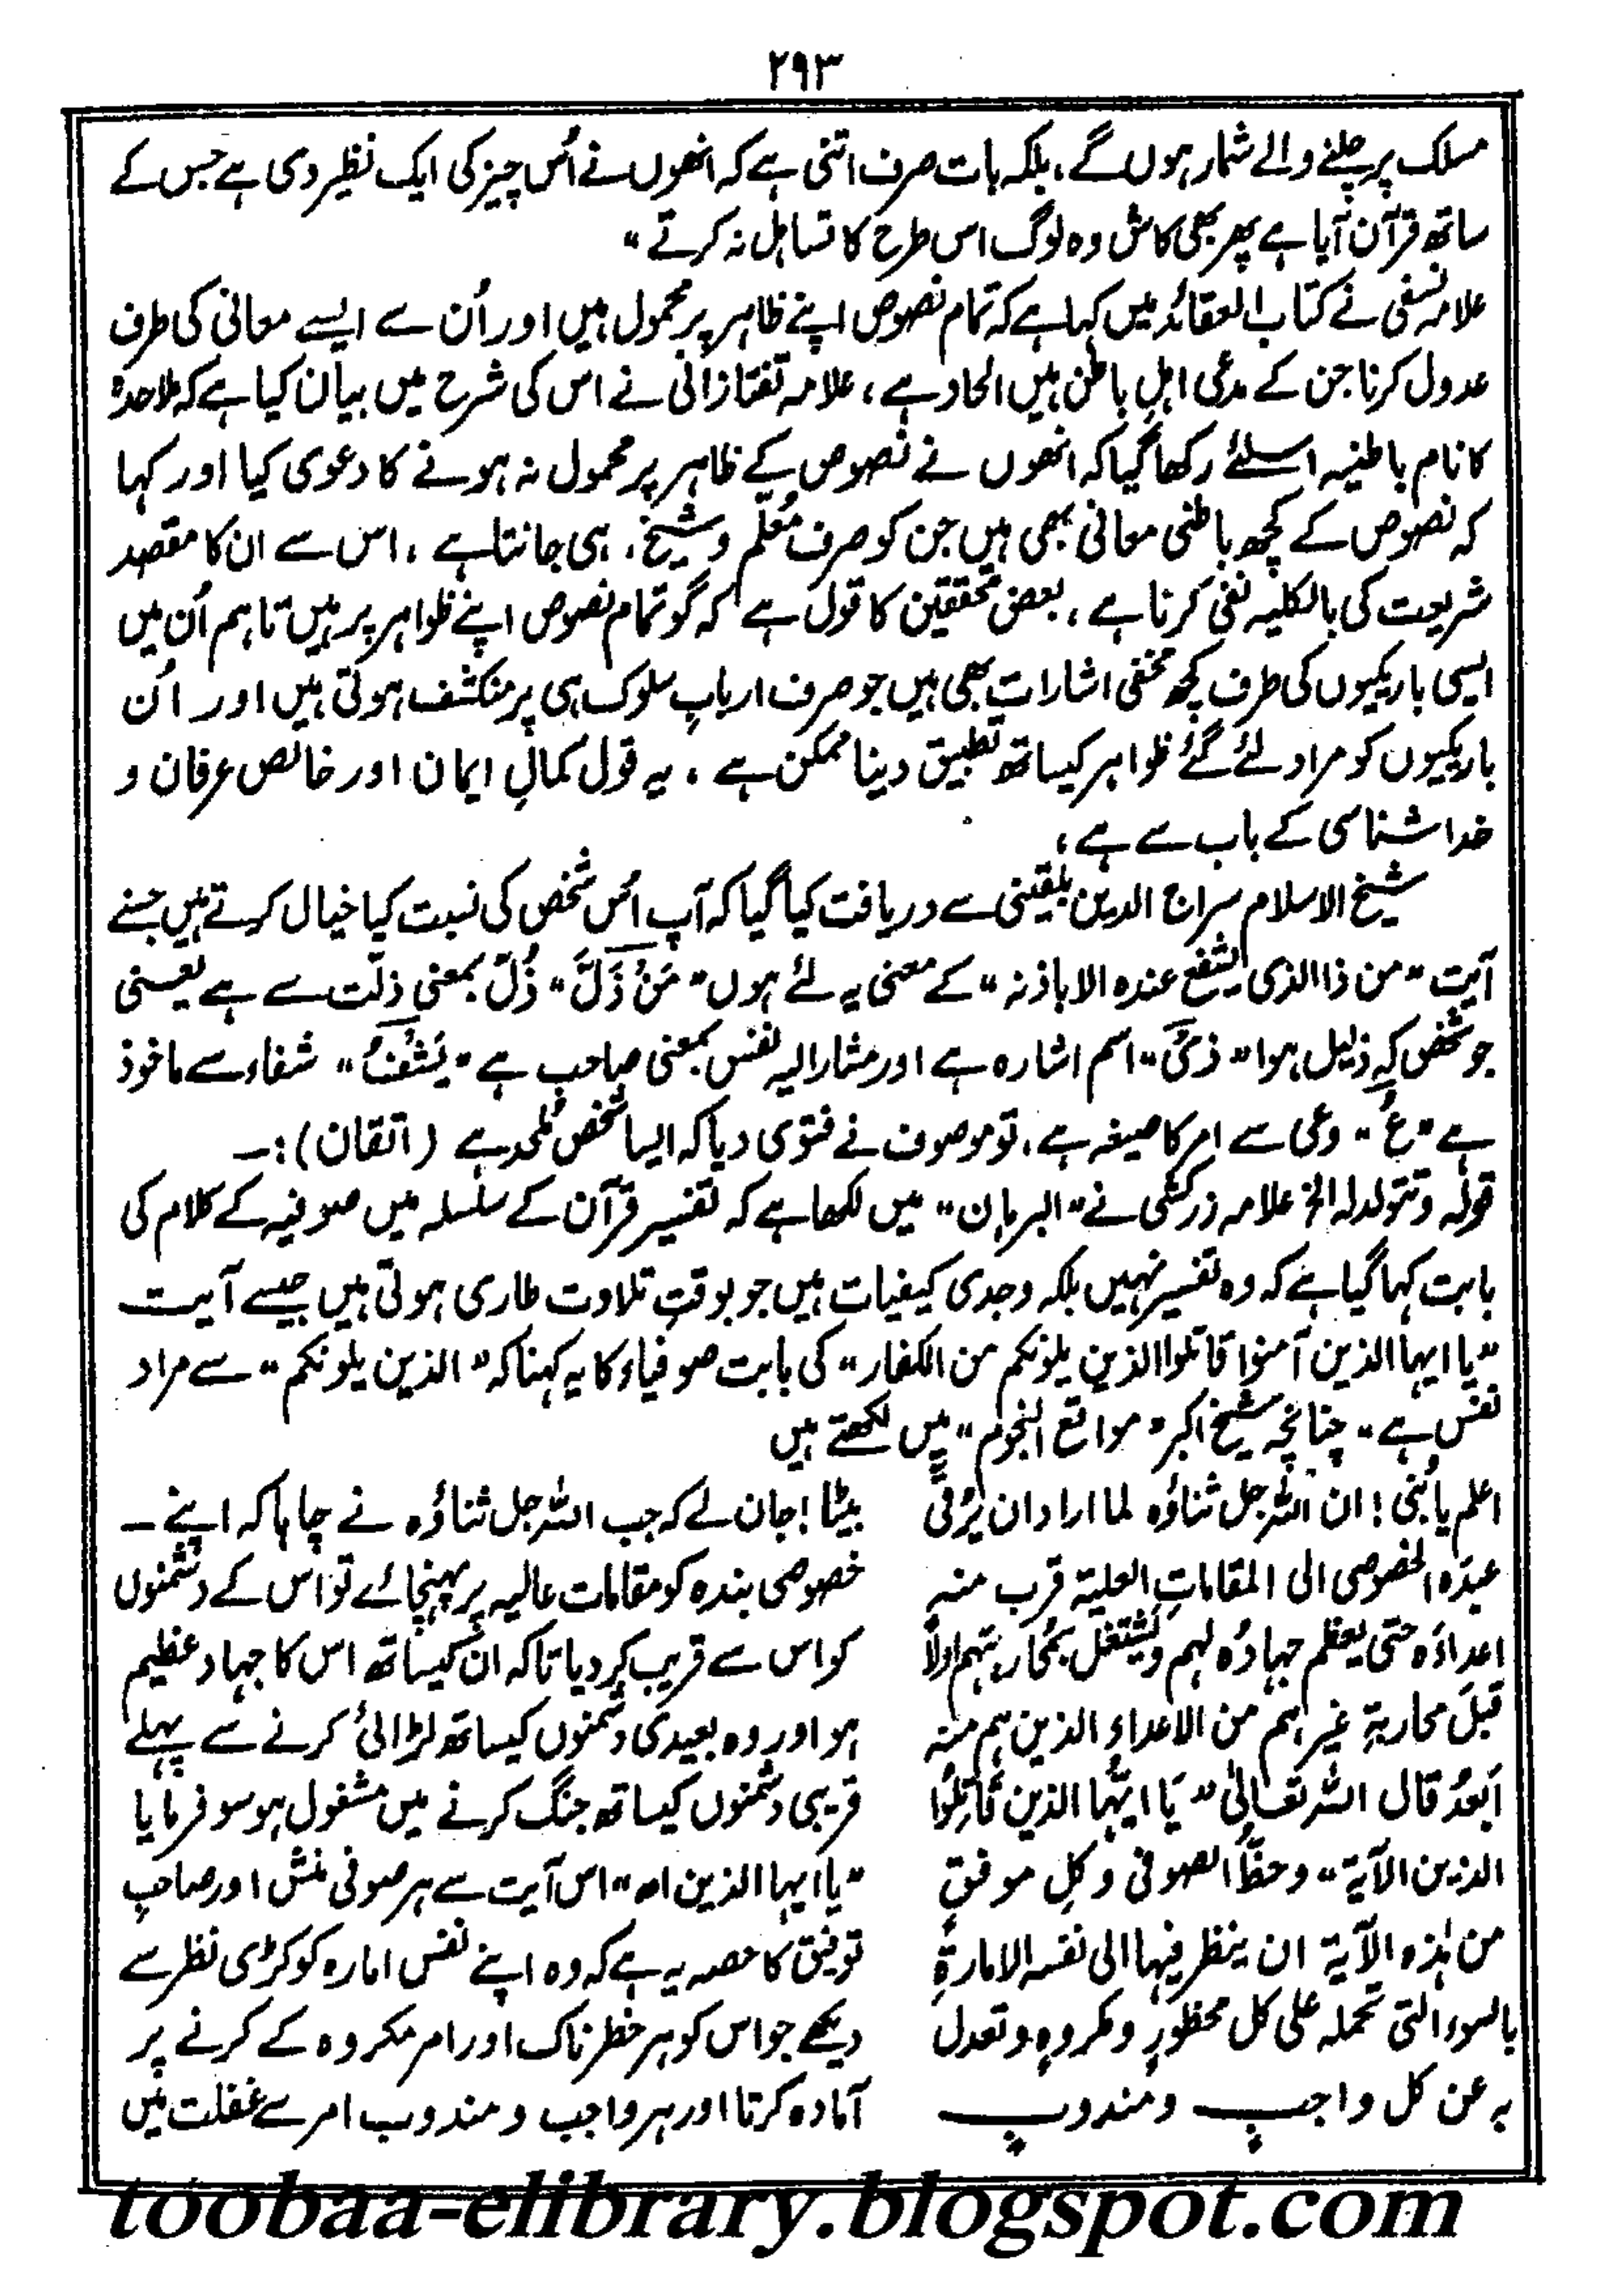 ۲۹۳
مسلک پر چلنے والے شمار ہوں گے، بلکہ بات صرف اتنی ہے کہ انھوں نے اُس چیز کی ایک نظیر دی ہے جس کے
ساتھ قرآن آیا ہے پھر بھی کاش وہ لوگ اس طرح کا تساہل نہ کرتے "
علامہ نسفی نے کتاب العقائد میں کہا ہے کہ تمام نصوص اپنے ظاہر پر محمول ہیں اور اُن سے ایسے معانی کی طرف
عدول کرنا جن کے مدعی اہلِ باطن ہیں الحاد ہے، علامہ تفتازانی نے اس کی شرح میں بیان کیا ہے کہ ملاحدہ
کا نام باطنیہ اسلئے رکھا گیا کہ انھوں نے نصوص کے ظاہر پر محمول نہ ہونے کا دعوی کیا اور کہا
کہ نصوص کے کچھ باطنی معانی بھی ہیں جن کو صرف مُعلّم و شیخ، ہی جانتا ہے، اس سے ان کا مقصد
شریعت کی بالکلیہ نفی کرنا ہے، بعض محققین کا قول ہے کہ گو تمام نصوص اپنے ظواہر پر ہیں تاہم اُن میں
ایسی باریکیوں کی طرف کچھ مخفی اشارات بھی ہیں جو صرف اربابِ سلوک ہی پر منکشف ہوتی ہیں اور اُن
باریکیوں کو مراد لئے گئے ظواہر کیساتھ تطبیق دینا ممکن ہے، یہ قول کمالِ ایمان اور خالص عرفان و
خدا شناسی کے باب سے ہے،
شیخ الاسلام سراج الدین بلقینی سے دریافت کیا گیا کہ آپ اُس شخص کی نسبت کیا خیال کرتے ہیں جسنے
آیت "من ذا الذی یشفع عندہ الا باذنہ" کے معنی یہ لئے ہوں "مَنْ ذَلَّ" ذُلّ بمعنی ذلّت سے ہے یعنی
جو شخص کہ ذلیل ہوا "ذِیْ" اسم اشارہ ہے اور مشار الیہ نفس بمعنی صاحب ہے "یَشْفِ" شفاء سے ماخوذ
ہے "عُ" وعی سے امر کا صیغہ ہے، تو موصوف نے فتوی دیا کہ ایسا شخص مُلحد ہے (اتقان):۔
قولہ وتتولدلہ الخ علامہ زرکشی نے "البرہان" میں لکھا ہے کہ تفسیر قرآن کے سلسلہ میں صوفیہ کے کلام کی
بابت کہا گیا ہے کہ وہ تفسیر نہیں بلکہ وجدی کیفیات ہیں جو بوقتِ تلاوت طاری ہوتی ہیں جیسے آیت
"یا ایہا الذین آمنوا قاتلوا الذین یلونکم من الکفار" کی بابت صوفیاء کا یہ کہنا کہ "الذین یلونکم" سے مراد
نفس ہے" چنانچہ شیخ اکبر "مواقع النجوم" میں لکھتے ہیں
اعلم یا بُنی! ان اللہ جل ثناؤہ لما اراد ان یُرَقّی
عبدَہ الخصوصی الی المقاماتِ العلیۃ قرب منہ
اعداءَہ حتی یعظم جہادُہ لہم ویَشتغل بمُحاربتہم اولاً
قبلَ محاربۃِ غیرہم من الاعداءِ الذین ہم منہ
اَبعدُ قال اللہ تعالیٰ "یَا ایُّہا الذین قَاتِلُوا
الذین الآیۃ" وحظُّ الصوفی وکلِ موفقٍ
من ہٰذہ الآیۃ ان ینظر فیہا الی نفسہ الامارۃِ
بالسوء التی تحملہ علی کل محظورٍ ومکروہٍ وتعدل
بہ عن کل واجبٍ ومندوبٍ
بیٹا! جان لے کہ جب اللہ جل ثناؤہ نے چاہا کہ اپنے ۔
خصوصی بندہ کو مقامات عالیہ پر پہنچائے تو اس کے دشمنوں
کو اس سے قریب کر دیا تاکہ ان کیساتھ اس کا جہاد عظیم
ہو اور وہ بعیدی دشمنوں کیساتھ لڑائی کرنے سے پہلے
قریبی دشمنوں کیساتھ جنگ کرنے میں مشغول ہو سو فرمایا
"یا ایہا الذین اھ" اس آیت سے ہر صوفی منش اور صاحبِ
توفیق کا حصہ یہ ہے کہ وہ اپنے نفس امارہ کو کڑی نظر سے
دیکھے جو اس کو ہر خطرناک اور امر مکروہ کے کرنے پر
آمادہ کرتا اور ہر واجب و مندوب امر سے غفلت میں
toobaa-elibrary.blogspot.com